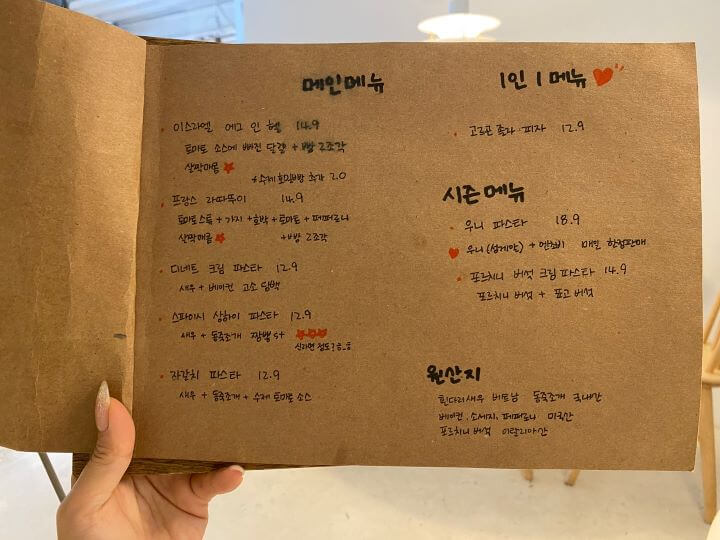 메인메뉴
이스라엘 에그 인 헬 14.9
토마토 소스에 빠진 달걀 + 빵 2조각
살짝매콤
+ 수제 호밀빵 추가 2.0
프랑스 라따뚜이 14.9
토마토스튜 + 가지 + 호박 + 토마토 + 페퍼로니
살짝매콤 + 빵 2조각
디네트 크림 파스타 12.9
새우 + 베이컨 고소 담백
스파이시 상하이 파스타 12.9
새우 + 동죽조개 짬뽕 st
신라면 정도?
자갈치 파스타 12.9
새우 + 동죽조개 + 수제 토마토 소스
1인 1 메뉴
고르곤 졸라 피자 12.9
시즌 메뉴
우니 파스타 18.9
우니 (성게알) + 엔초비 매일 한정판매
포르치니 버섯 크림 파스타 14.9
포르치니 버섯 + 표고 버섯
원산지
흰다리새우 베트남 동죽조개 국내산
베이컨, 소세지, 페퍼로니 미국산
포르치니 버섯 이탈리아산